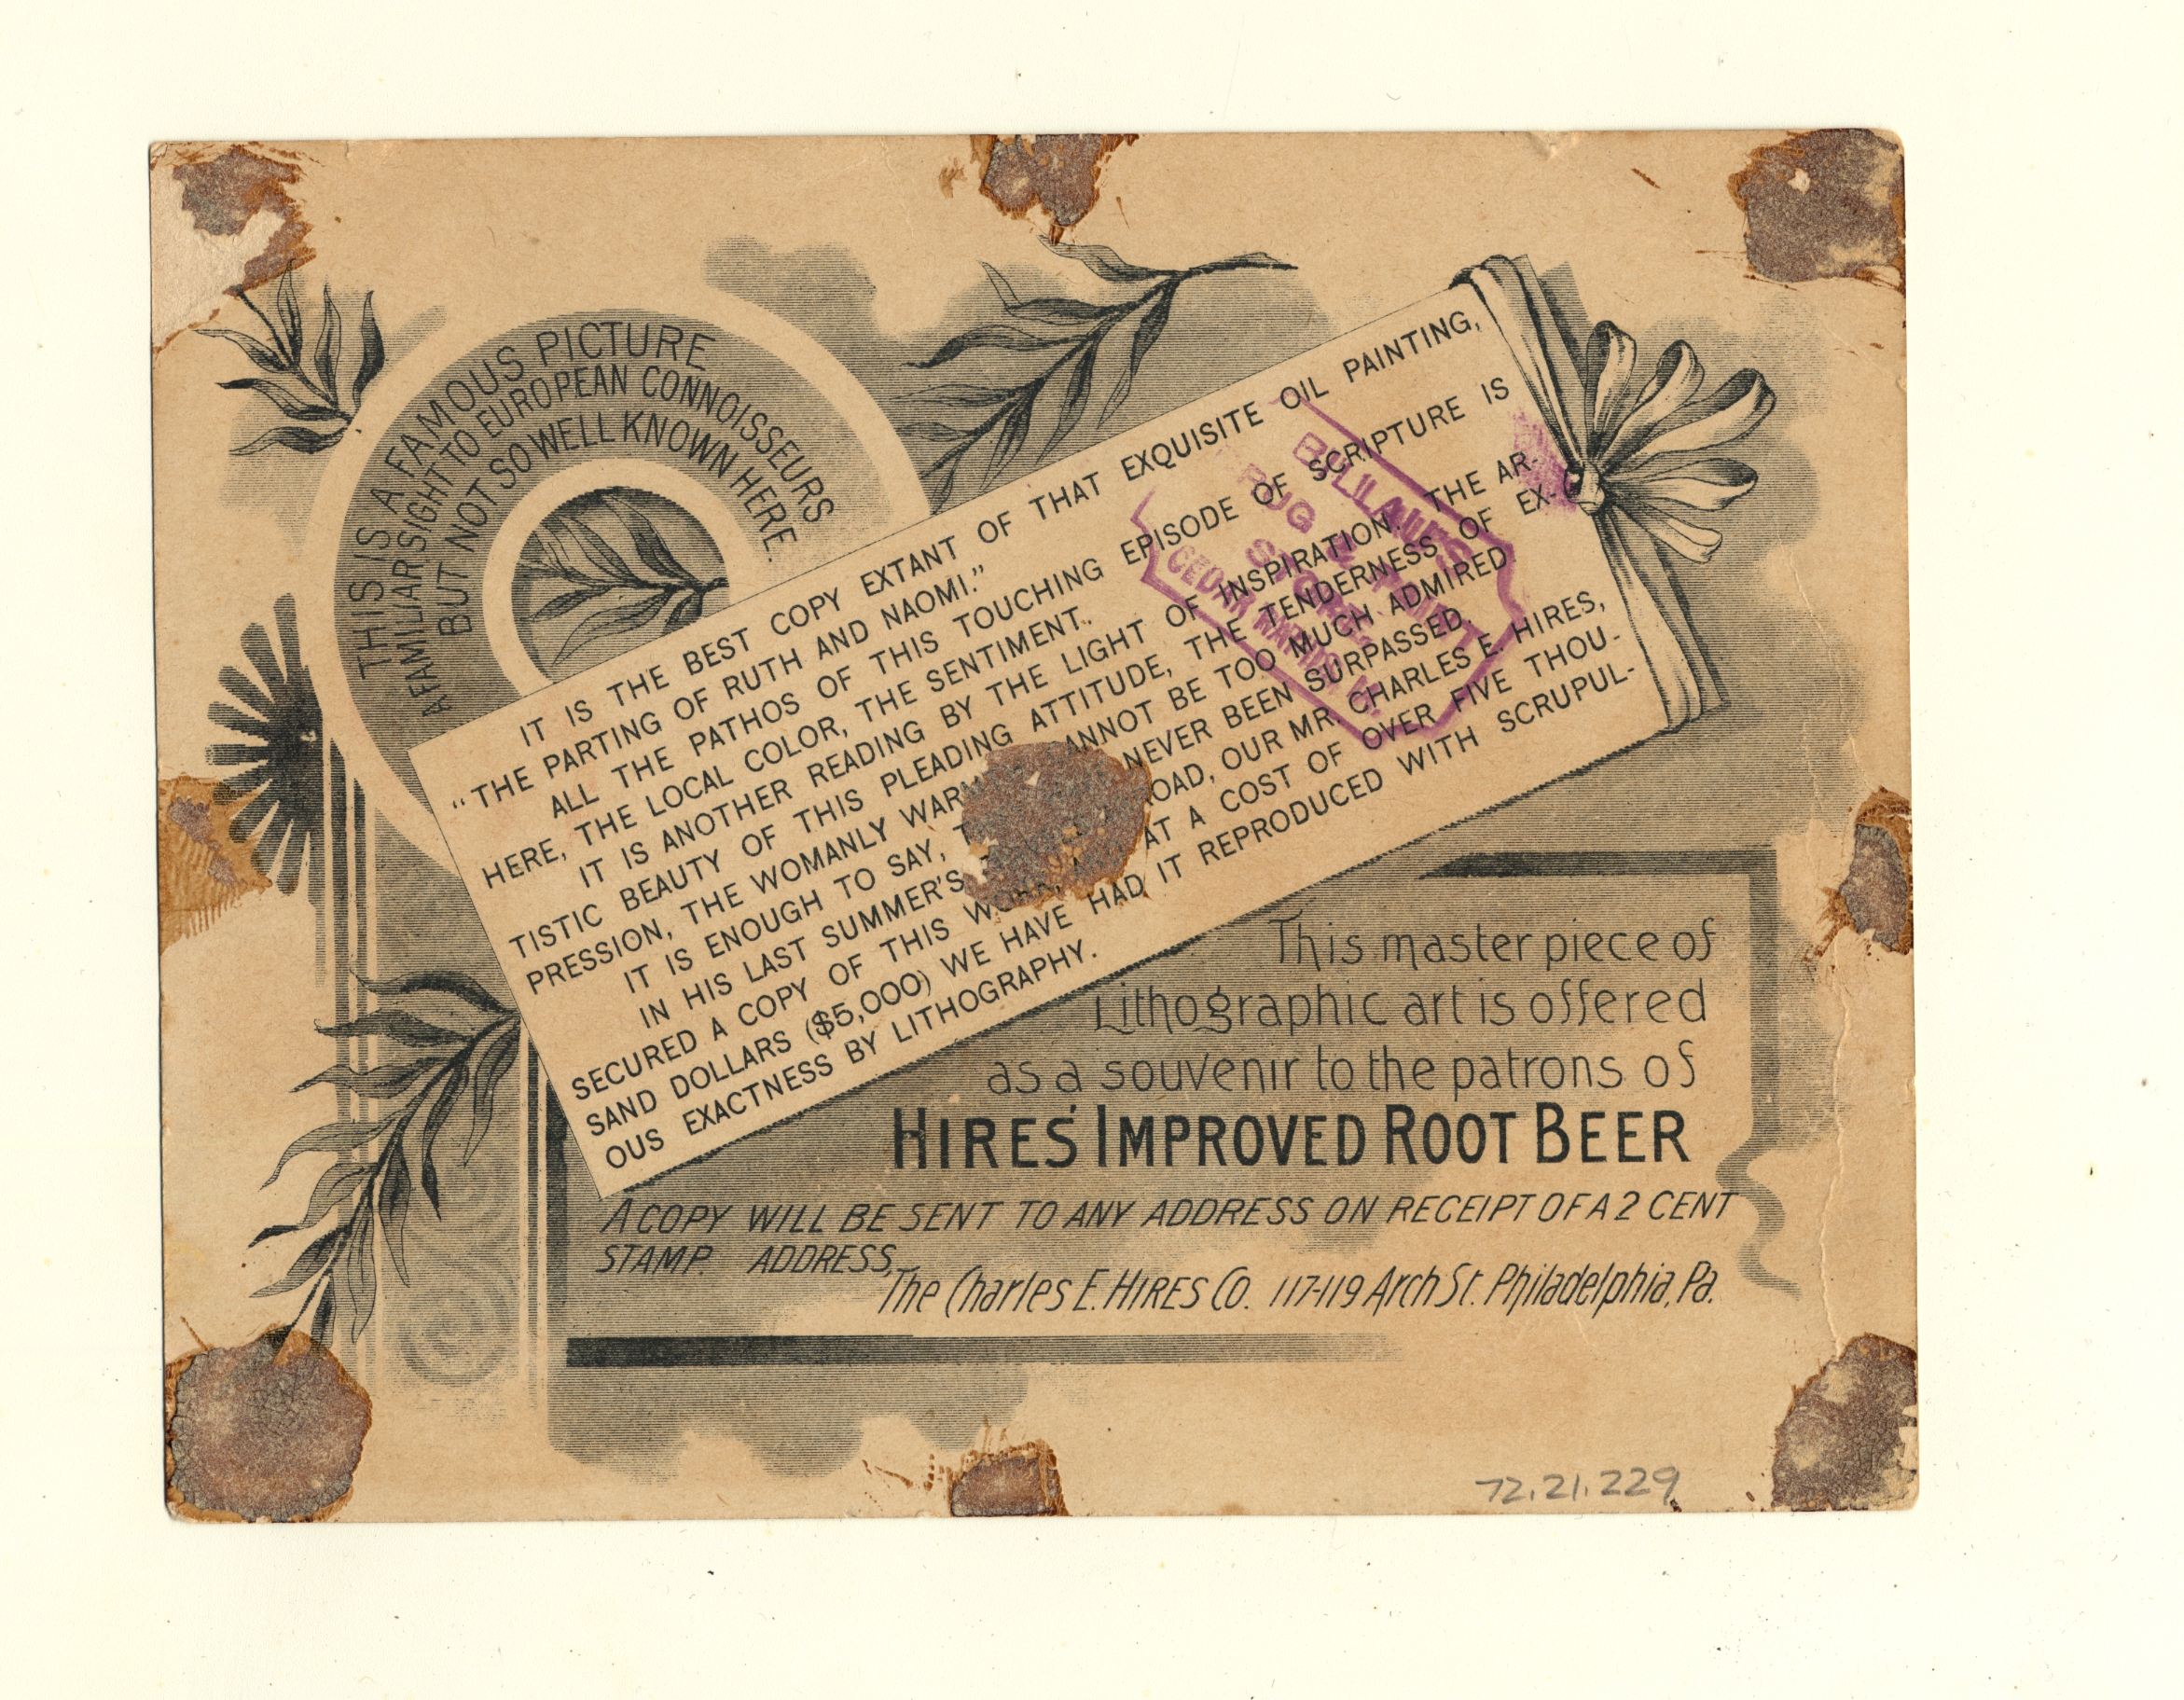 THIS IS A FAMOUS PICTURE
A FAMILIAR SIGHT TO EUROPEAN CONNOISSEURS
BUT NOT SO WELL KNOWN HERE.
IT IS THE BEST COPY EXTANT OF THAT EXQUISITE OIL PAINTING,
"THE PARTING OF RUTH AND NAOMI."
ALL THE PATHOS OF THIS TOUCHING EPISODE OF SCRIPTURE IS
HERE, THE LOCAL COLOR, THE SENTIMENT.
IT IS ANOTHER READING BY THE LIGHT OF INSPIRATION. THE AR-
TISTIC BEAUTY OF THIS PLEADING ATTITUDE, THE TENDERNESS OF EX-
PRESSION, THE WOMANLY CANNOT BE TOO MUCH ADMIRED
IT IS ENOUGH TO SAY, NEVER BEEN SURPASSED.
IN HIS LAST SUMMER'S OUR MR. CHARLES E. HIRES,
SECURED A COPY OF THIS AT A COST OF OVER FIVE THOU-
SAND DOLLARS ($5,000) WE HAVE HAD IT REPRODUCED WITH SCRUPUL-
OUS EXACTNESS BY LITHOGRAPHY.
STORE
CEDAR RAPIDS
This master piece of
Lithographic art is offered
as a souvenir to the patrons of
HIRES' IMPROVED ROOT BEER
A COPY WILL BE SENT TO ANY ADDRESS ON RECEIPT OF A 2 CENT
STAMP. ADDRESS,
The Charles E. HIRES Co. 117-119 Arch St. Philadelphia, Pa.
72.21.229